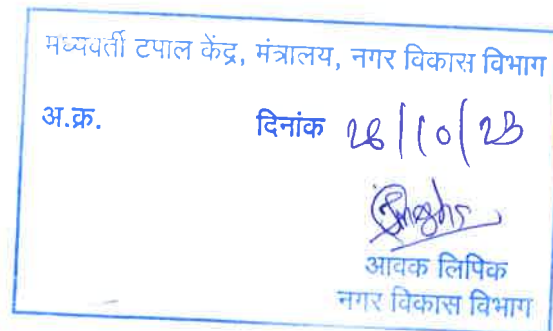 मध्यवर्ती टपाल केंद्र, मंत्रालय, नगर विकास विभाग
अ.क्र. दिनांक 26/10/23
आवक लिपिक
नगर विकास विभाग